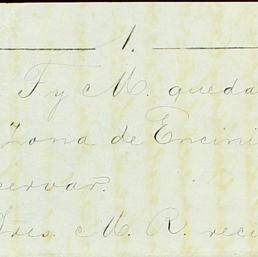 1.
F y M. queda
Zona de Encini
servar.
Dres. M. R. reci